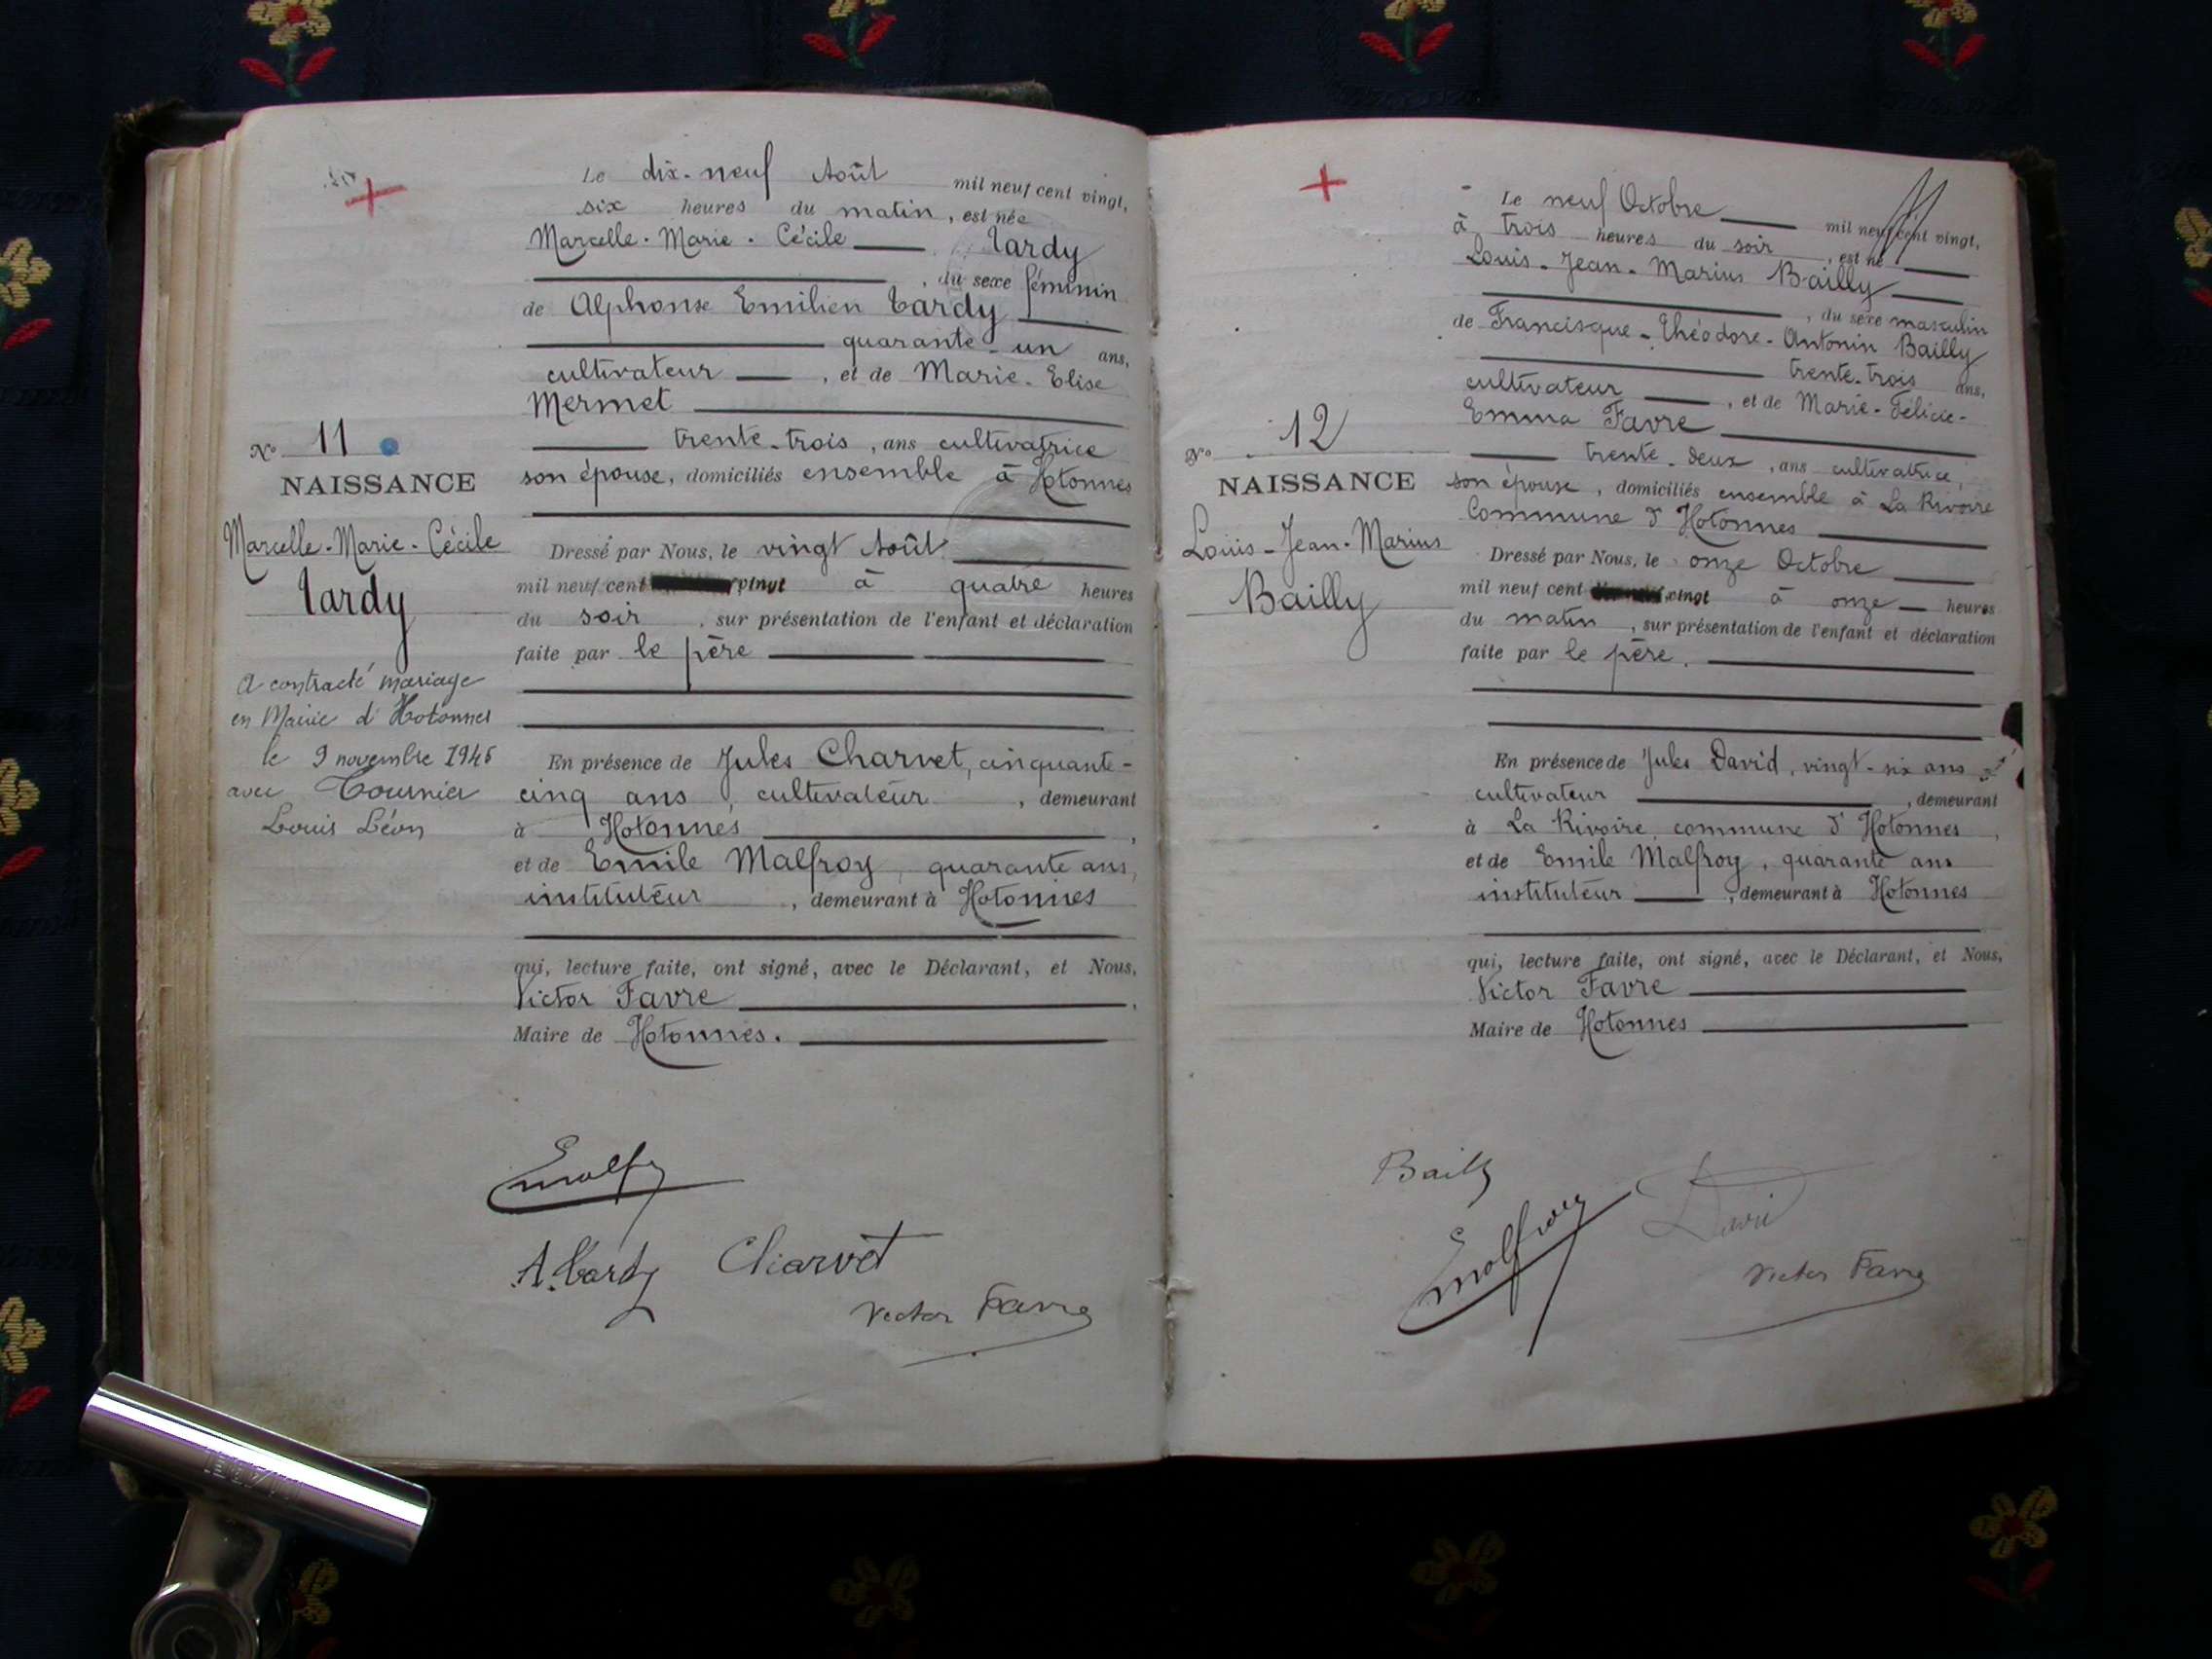 Le dix-neuf Août mil neuf cent vingt,
six heures du matin, est née
Marcelle-Marie-Cécile Tardy
, du sexe féminin
de Alphonse Emilien Tardy
quarante-un ans,
cultivateur, et de Marie-Elise
Mermet
trente-trois, ans cultivatrice
son épouse, domiciliés ensemble à Hotonnes
No 11
NAISSANCE
Marcelle-Marie-Cécile
Tardy
A contracté mariage
en Mairie d'Hotonnes
le 9 novembre 1945
avec Tournier
Louis Léon
Dressé par Nous, le vingt Août
mil neuf cent vingt à quatre heures
du soir, sur présentation de l'enfant et déclaration
faite par le père
En présence de Jules Charvet, cinquante-
cinq ans, cultivateur, demeurant
à Hotonnes,
et de Emile Malfroy, quarante ans,
instituteur, demeurant à Hotonnes
qui, lecture faite, ont signé, avec le Déclarant, et Nous,
Victor Favre.
Maire de Hotonnes.
A. Tardy Charvet
Victor Favre
Le neuf Octobre mil neuf cent vingt,
à trois heures du soir, est né
Louis-Jean-Marius Bailly
, du sexe masculin
de Francisque-Théodore-Antonin Bailly
trente-trois ans,
cultivateur, et de Marie-Félicie-
Emma Favre
trente-deux, ans cultivatrice,
son épouse, domiciliés ensemble à La Rivoire
Commune d'Hotonnes
No 12
NAISSANCE
Louis-Jean-Marius
Bailly
Dressé par Nous, le onze Octobre
mil neuf cent vingt à onze heures
du matin, sur présentation de l'enfant et déclaration
faite par le père.
En présence de Jules David, vingt-six ans
cultivateur, demeurant
à La Rivoire, commune d'Hotonnes,
et de Emile Malfroy, quarante ans
instituteur, demeurant à Hotonnes
qui, lecture faite, ont signé, avec le Déclarant, et Nous,
Victor Favre
Maire de Hotonnes
Bailly
EMalfroy David
Victor Favre